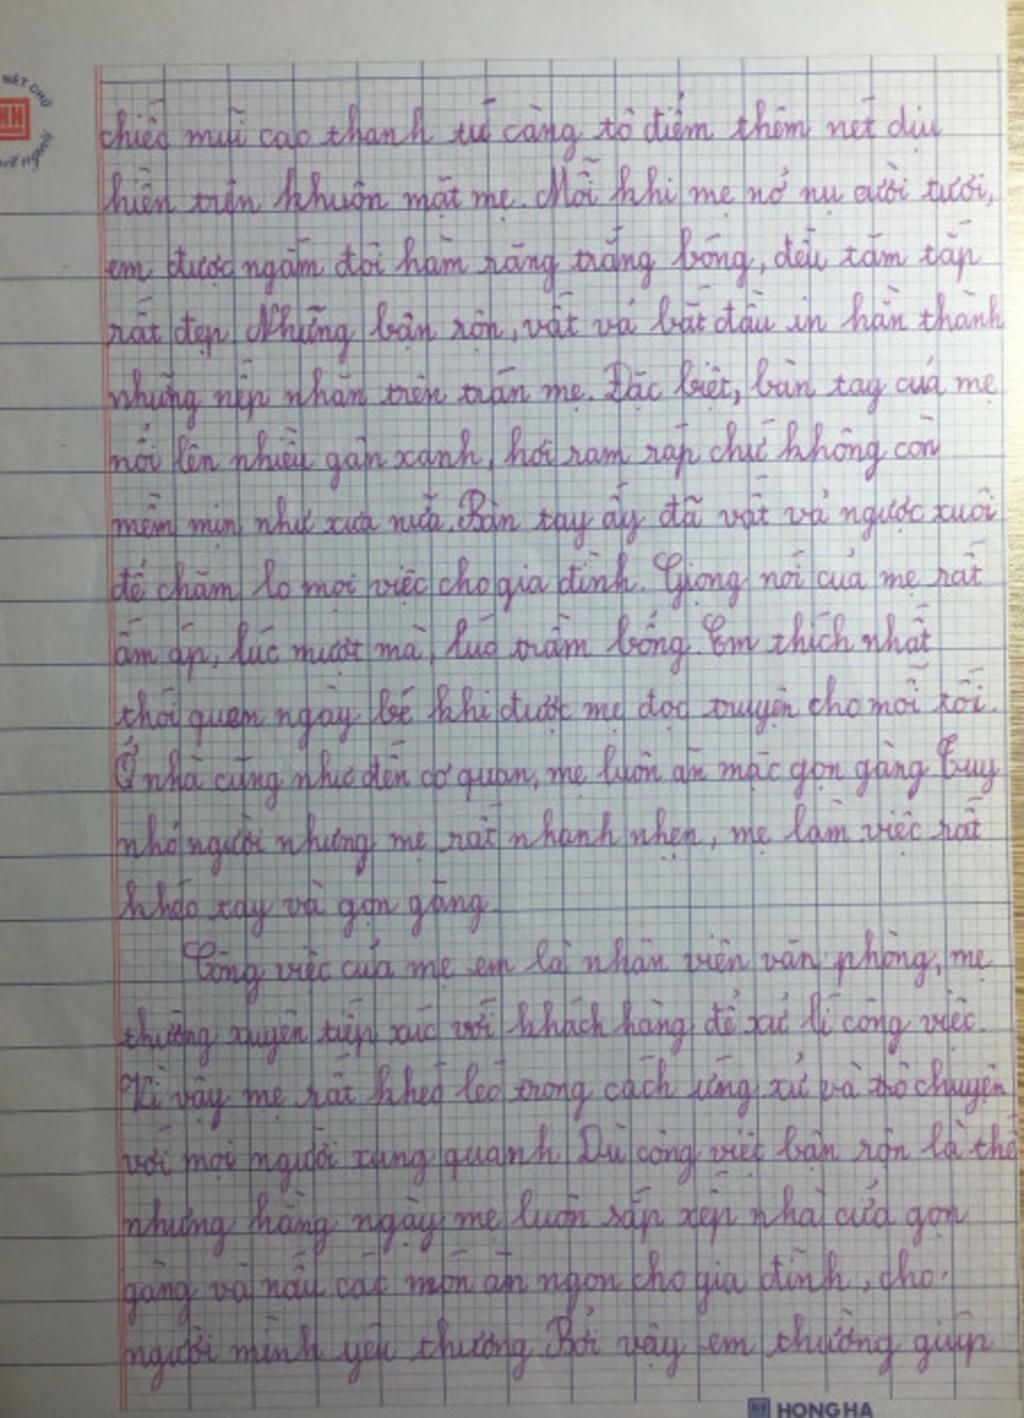 NÉT CHỮ
HH
chiếc mũi cao thanh tú càng tô điểm thêm nét dịu
hiền trên khuôn mặt mẹ. Mỗi khi mẹ nở nụ cười tươi,
em được ngắm đôi hàm răng trắng bóng, đều tăm tắp
rất đẹp. Những bận rộn, vất vả bắt đầu in hằn thành
những nếp nhăn trên trán mẹ. Đặc biệt, bàn tay của mẹ
nổi lên nhiều gân xanh, hơi ram ráp chứ không còn
mềm mịn như xưa nữa. Bàn tay ấy đã vất vả ngược xuôi
để chăm lo mọi việc cho gia đình. Giọng nói của mẹ rất
ấm áp, lúc mượt mà, lúc trầm bổng. Em thích nhất
thói quen ngày bé khi được mẹ đọc truyện cho mỗi tối.
Ở nhà cũng như đến cơ quan, mẹ luôn ăn mặc gọn gàng Tuy
nhỏ người nhưng mẹ rất nhanh nhẹn, mẹ làm việc rất
khéo tay và gọn gàng.
Công việc của mẹ em là nhân viên văn phòng, mẹ
thường xuyên tiếp xúc với khách hàng để xử lí công việc.
Vì vậy mẹ rất khéo léo trong cách ứng xử và trò chuyện
với mọi người xung quanh Dù công việc bận rộn là thế
nhưng hàng ngày mẹ luôn sắp xếp nhà cửa gọn
gàng và nấu các món ăn ngon cho gia đình, cho
người mình yêu thương Bởi vậy em thường giúp
HH HONG HA